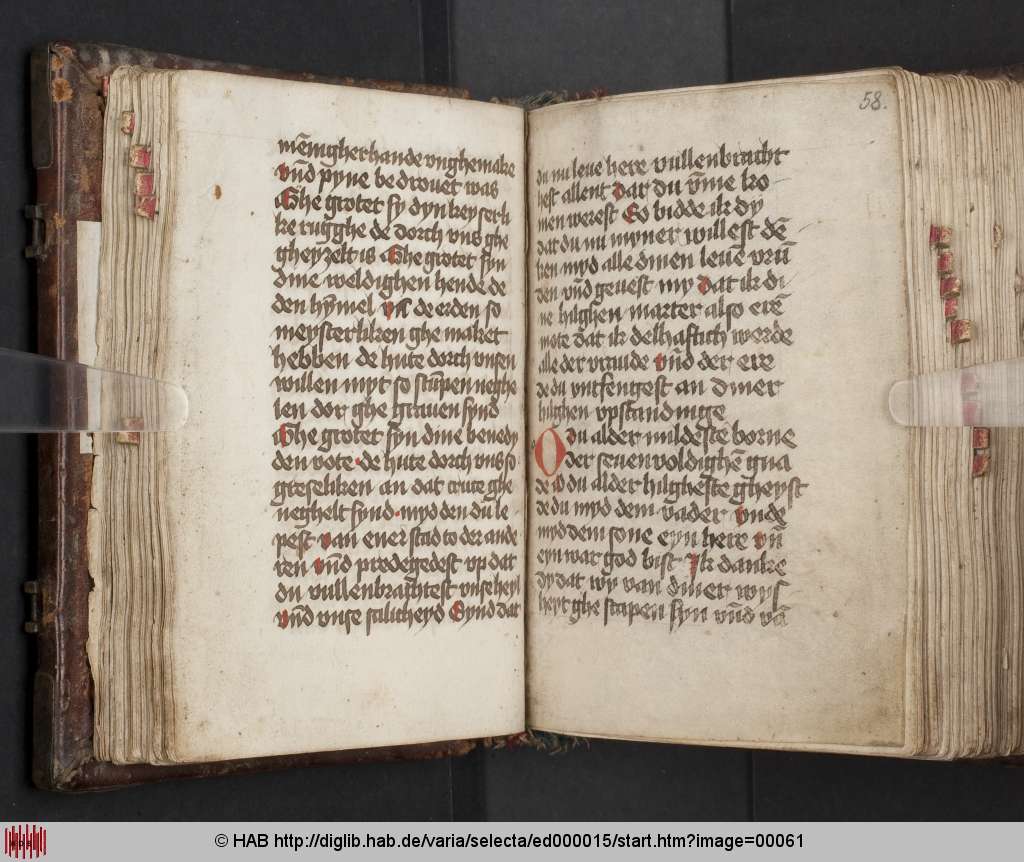 mēnigherhande vnghemake
vn̄d pyne bedrouet was
Ghe grotet sy dyn keyserli
ke rugghe de dorch vns ghe
gheyzelt is Ghe grotet syn
dine weldighen hende de
den hȳmel vn̄ de erden so
meysterliken ghe maket
hebben de hute dorch vnsen
willen myt so stūpen neghe
len dor ghe grauen synd
Ghe grotet syn dine benedy
den vote · de hute dorch vns so
greseliken an dat cruce ghe
neghelt synd · myd den du le
pest van ener stad to der ande
ren vn̄d predegedest vp dat
du vullenbrachtest vnse heyl
vn̄d vnse salicheyd Synd dat
58.
du nu leue here vullenbracht
hest allent dar du v̄me ko
men werest So bidde ik dy
dat du nu myner willest dē
ken myd alle dinen leuē vrū
den vn̄d geuest my dat ik di
ne hilghen marter also erē
mote dat ik delhaftich werde
alle der vraude vn̄d der ere
de du vntfengest an diner
hilghen vpstandinge
O du alder mildeste borne
der seuenvoldighē gna
de o du alder hilgheste gheyst
de du myd dem vader vnde
myd dem sone eyn here vn̄
eyn war god bist Ik danke
dy dat wy van diner wys
heyt ghe scapen syn vn̄d vā
© HAB http://diglib.hab.de/varia/selecta/ed000015/start.htm?image=00061